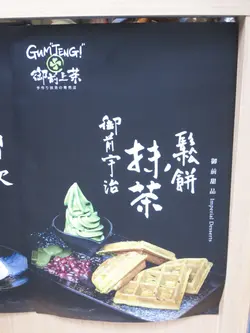 GUM"JENG!
御封上茶
御前宇治
抹茶
鬆餅
御前甜品 Imperial Desserts